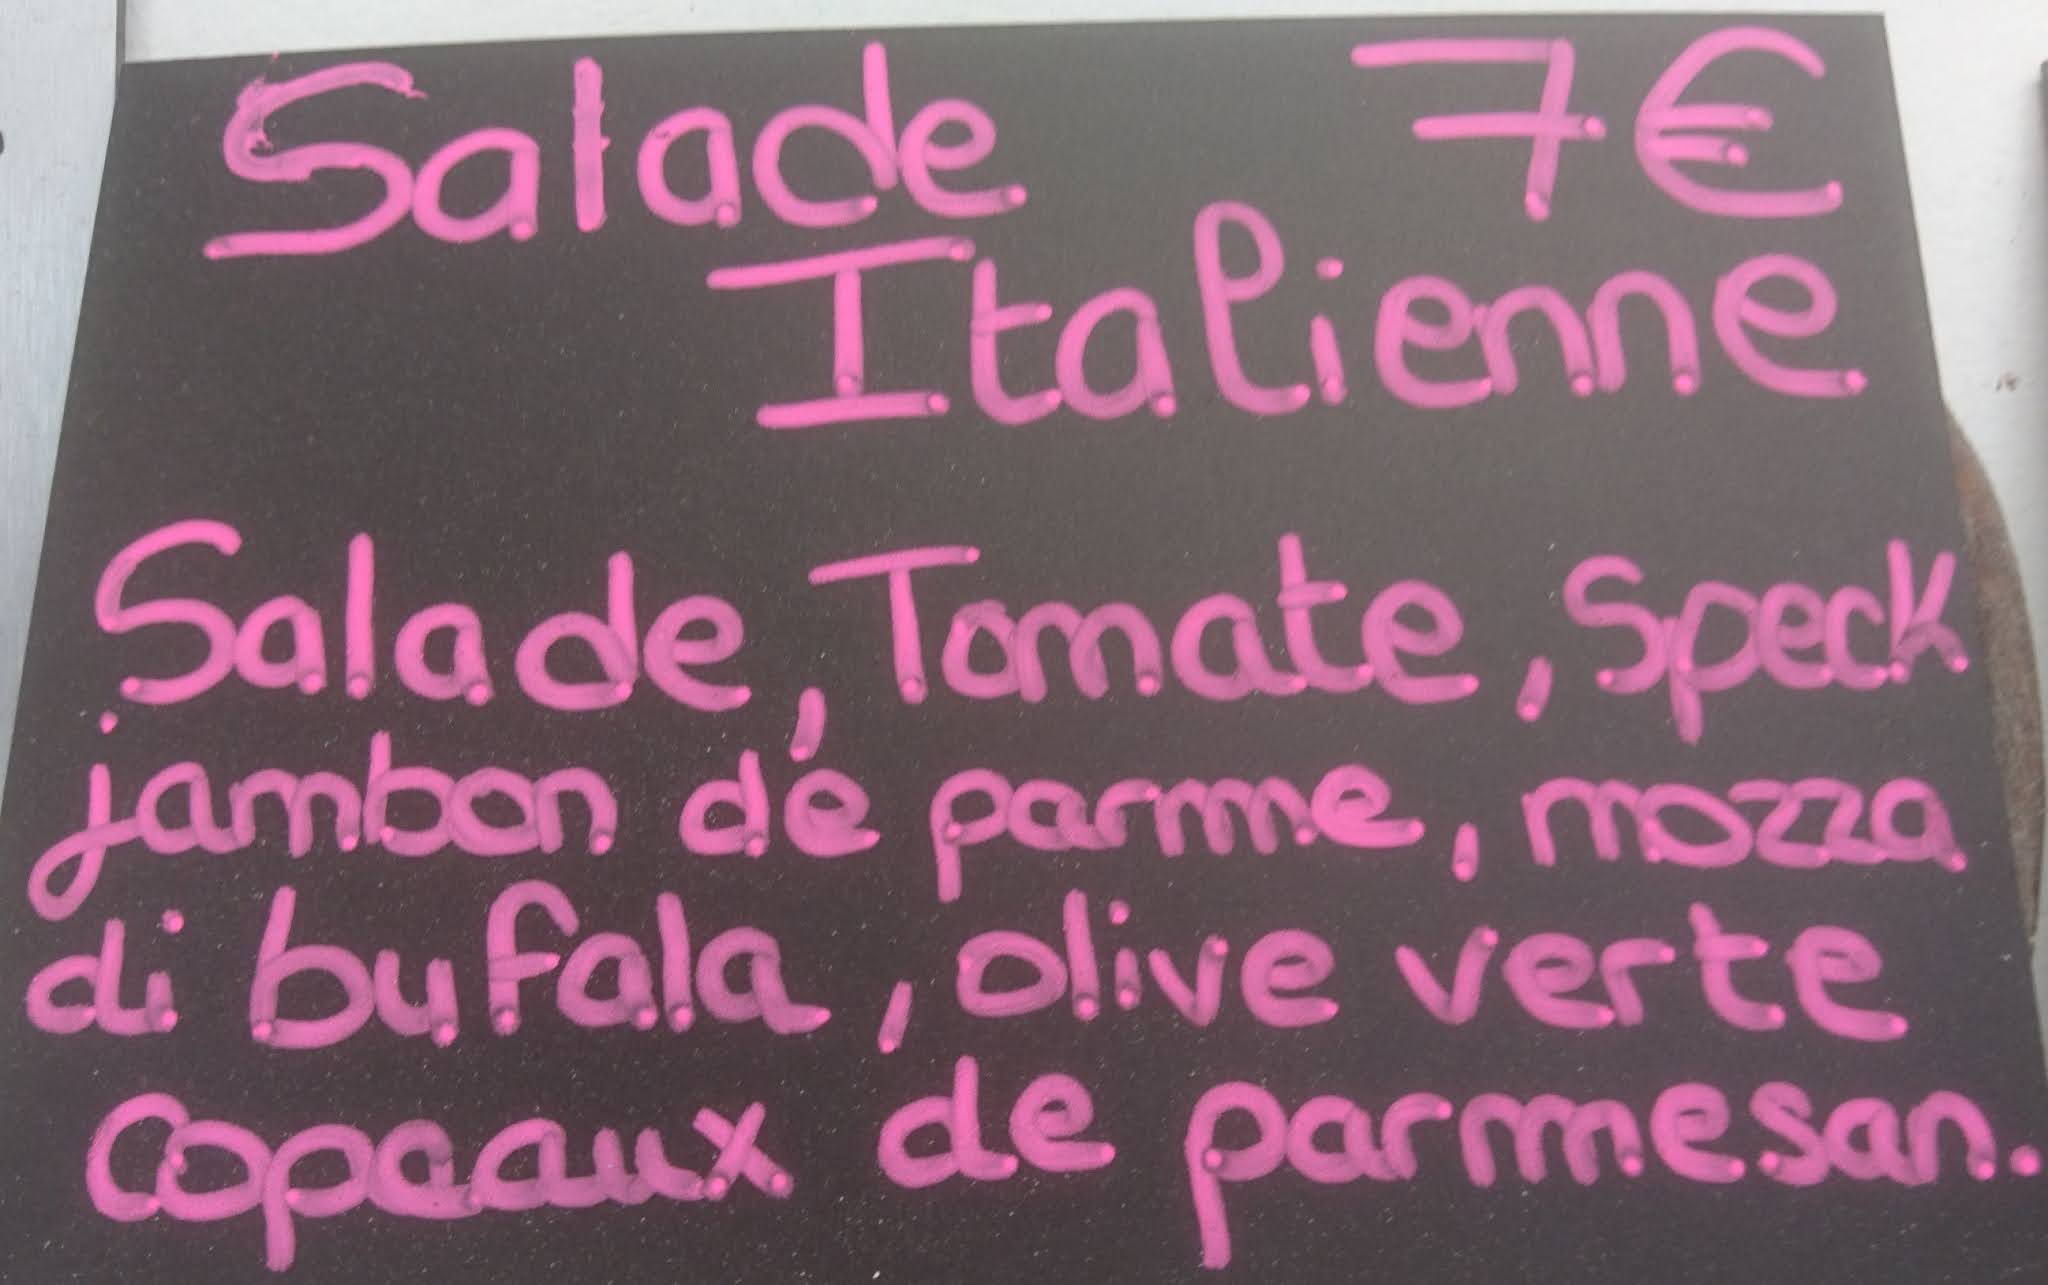 Salade 7€
Italienne
Salade, Tomate, Speck
jambon de parme, mozza
di bufala, olive verte
Copeaux de parmesan.